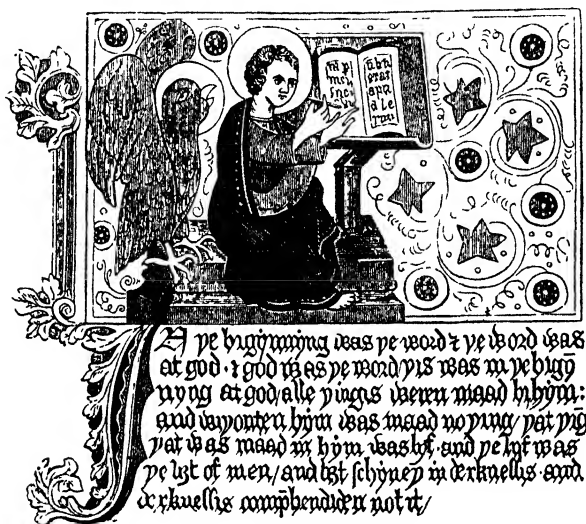 IN ye bigynnyng was ye word & ye word was
at god · & god was ye word / yis was in ye bigyn
nyng at god / alle yingis weren maad bi hym:
and wiyouten hym was maad no ying / yat yig
yat was maad in hym was lyf · and ye lyf was
ye liȝt of men / and liȝt schyney in derknessis · and
derknessis comphendiden not it /